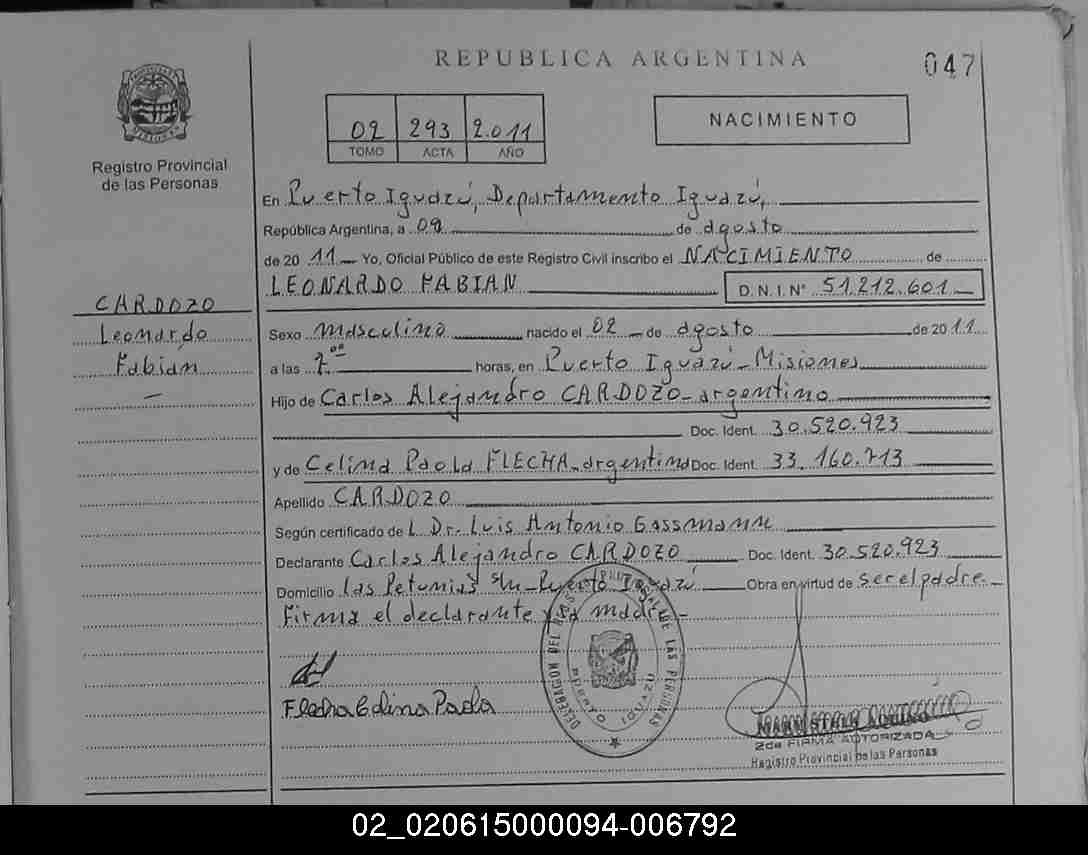 REPUBLICA ARGENTINA
047
PROVINCIA DE MISIONES
Registro Provincial
de las Personas
02 293 2.011
TOMO ACTA AÑO
NACIMIENTO
En Puerto Iguazú, Departamento Iguazú,
República Argentina, a 09 de agosto
de 20 11 Yo, Oficial Público de este Registro Civil inscribo el NACIMIENTO de
LEONARDO FABIAN D.N.I. N° 51.212.601
CARDOZO
Leonardo
Fabián
Sexo masculino nacido el 02 de agosto de 2011
a las 7.00 horas, en Puerto Iguazú - Misiones
Hijo de Carlos Alejandro CARDOZO - argentino
Doc. Ident. 30.520.923
y de Celina Paola FLECHA - argentina Doc. Ident. 33.160.713
Apellido CARDOZO
Según certificado de L Dr. Luis Antonio Gassmann
Declarante Carlos Alejandro CARDOZO Doc. Ident. 30.520.923
Domicilio las Petunias s/n - Puerto Iguazú Obra en virtud de ser el padre -
Firma el declarante y la madre -
DELEGACION DEL REGISTRO PROVINCIAL DE LAS PERSONAS
PUERTO IGUAZU
Flecha Celina Paola
2da FIRMA AUTORIZADA
Registro Provincial de las Personas
02_020615000094-006792